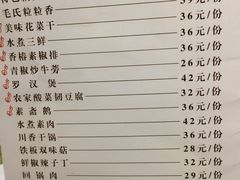 毛氏粒粒香 36元/份
美味花菜干 39元/份
水煮三鲜 36元/份
香椿素椒排 36元/份
青椒炒牛蒡 26元/份
罗汉煲 42元/份
农家酸菜韧豆腐 32元/份
素斋鹅 36元/份
水煮素肉 42元/份
川香干锅 36元/份
铁板双味菇 28元/份
鲜椒辣子丁 32元/份
回锅肉 29元/份